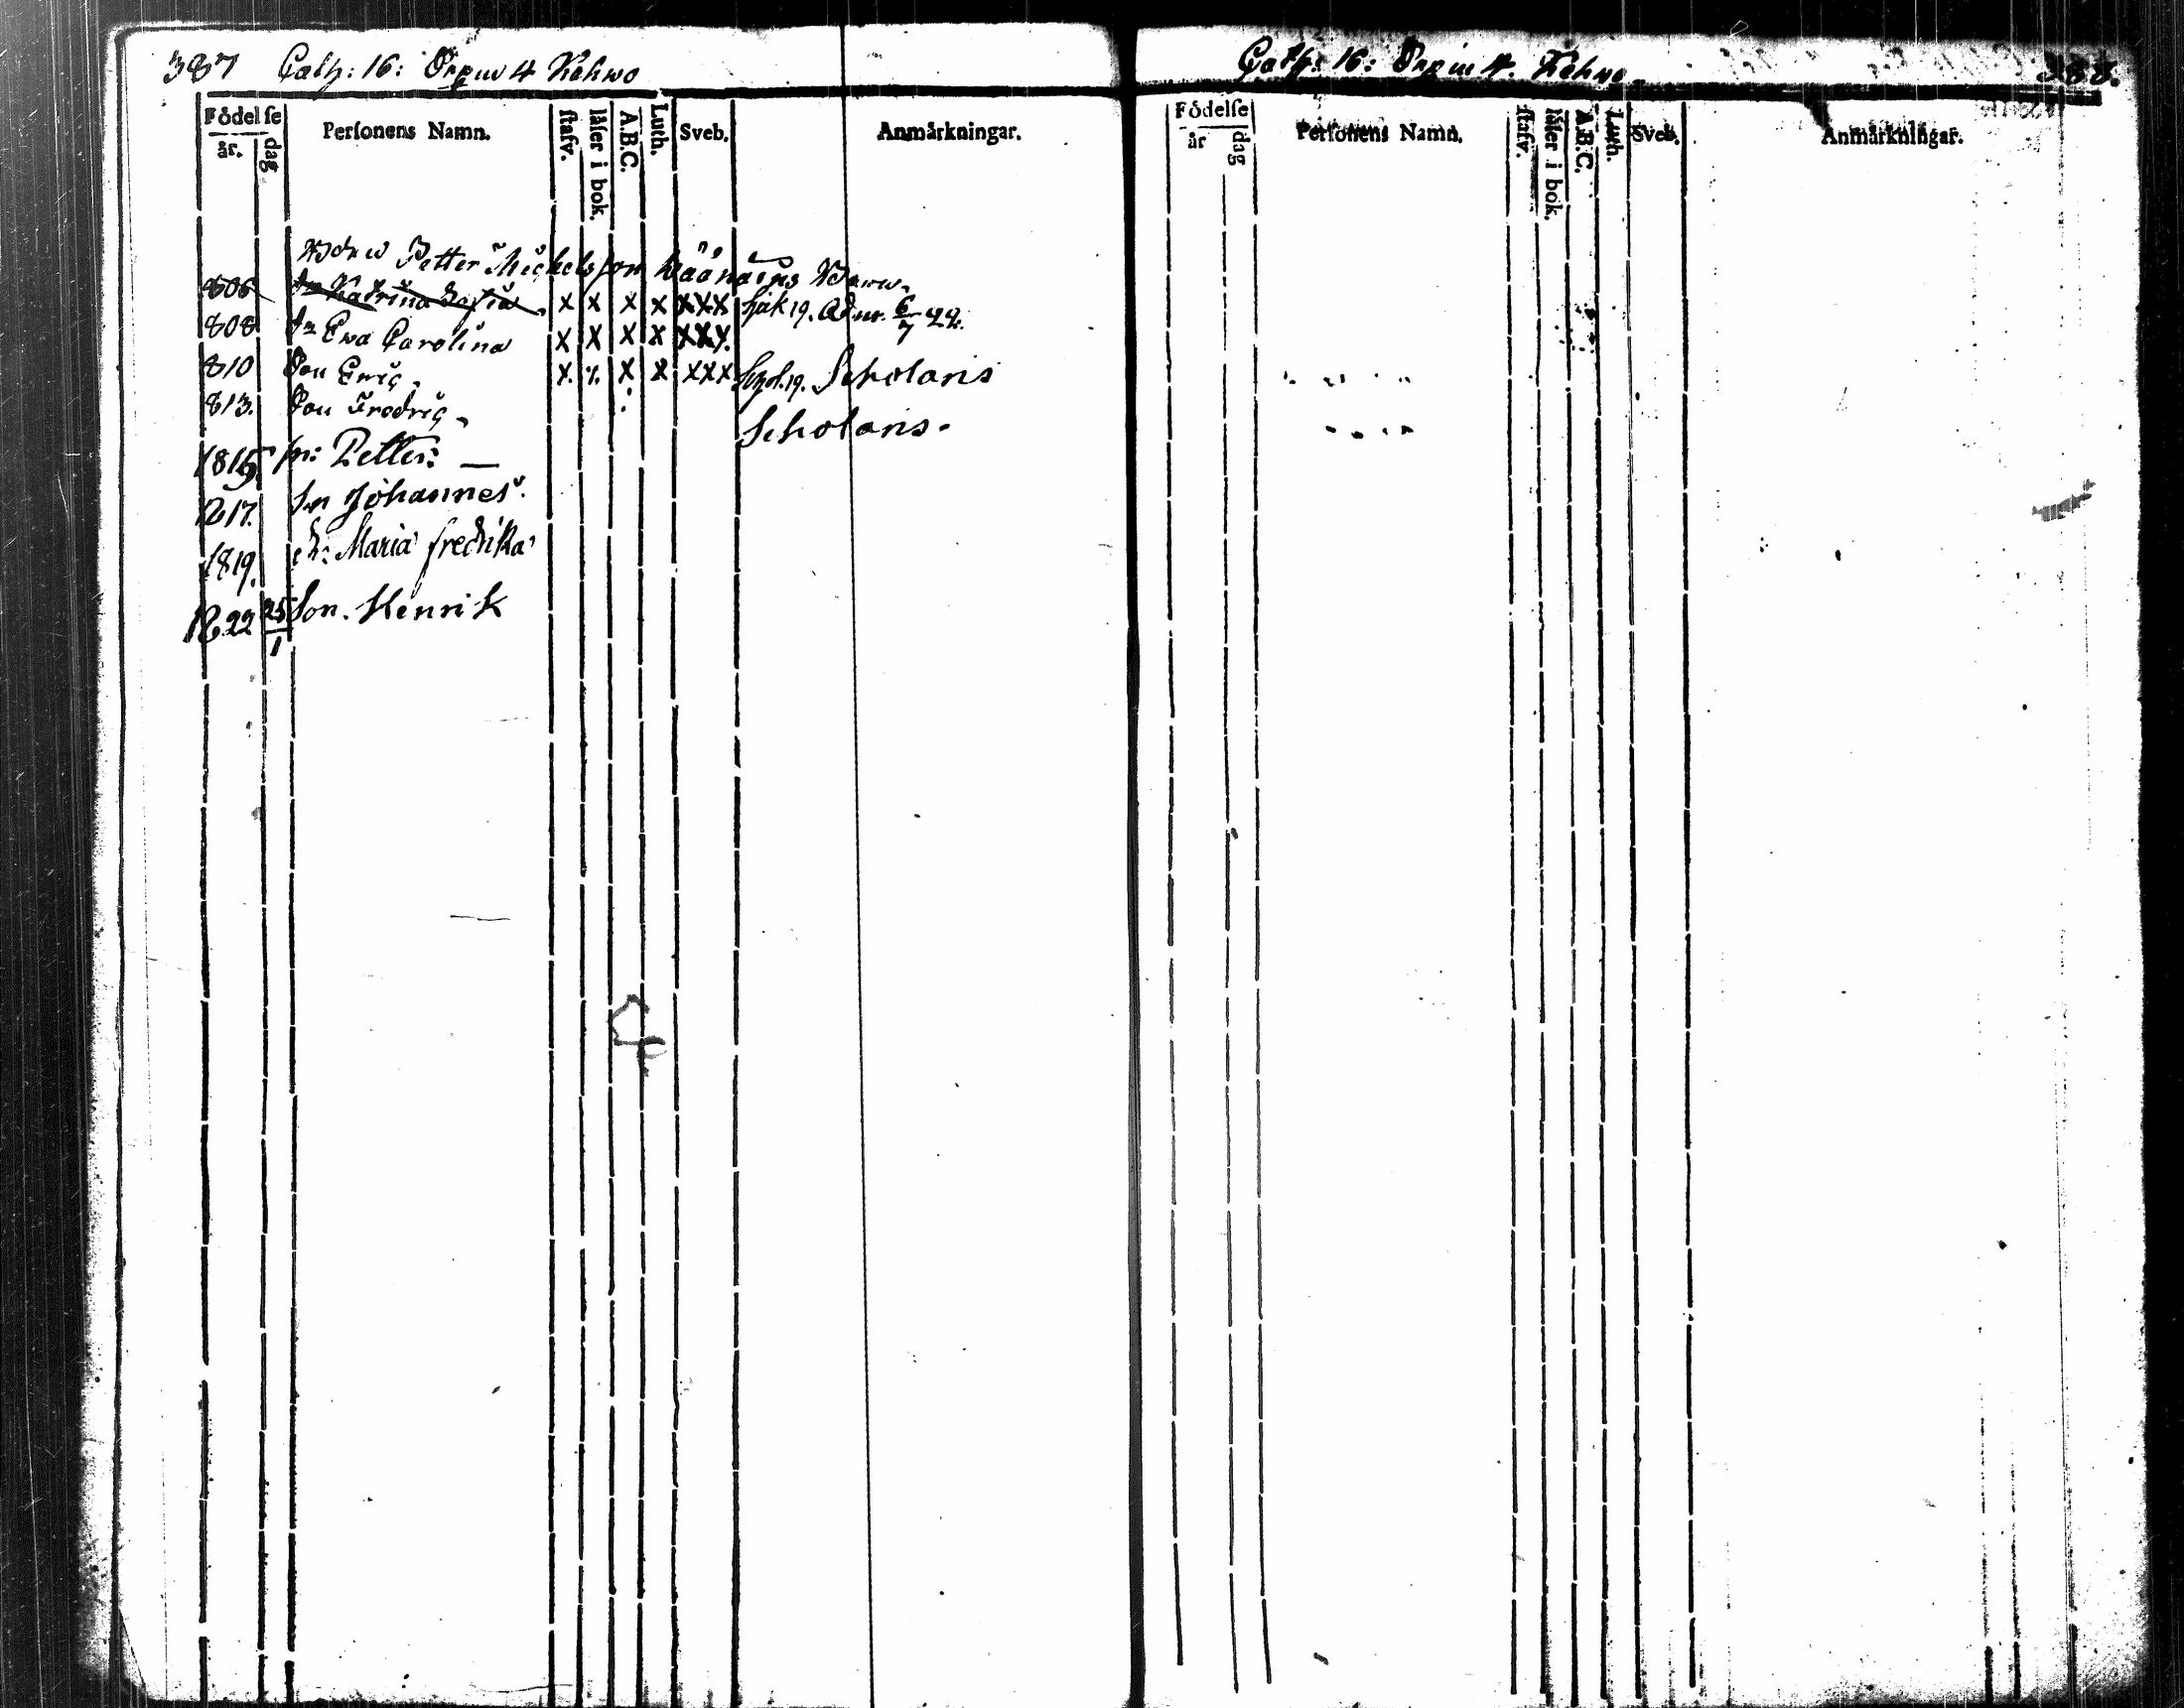 387 Cath: 16: Orzin 4 Kehwo
Födelſe
år. dag
Perſonens Namn.
ſtafv.
låſer i bok.
A.B.C.
Luth.
Sveb.
Anmärkningar.
Petter Michelsson Wäänäins Barn.
806 dr Katrina Sofia x x x x xxx 19. 6/7 22.
808 dr Ewa Carolina x x x x xxx
810 Son Eric x x x x xxx 19. Scholaris
813. Son Fredric Scholaris.
1815 sn: Petter: —
1817. sn Johannes.
1819. d: Maria fredrika
1822 25/1 Son. Henrik
Cath: 16: Orzin 4. Kehwo 388.
Födelſe
år dag
Perſonens Namn.
ſtafv.
låſer i bok.
A.B.C.
Luth.
Sveb.
Anmärkningar.